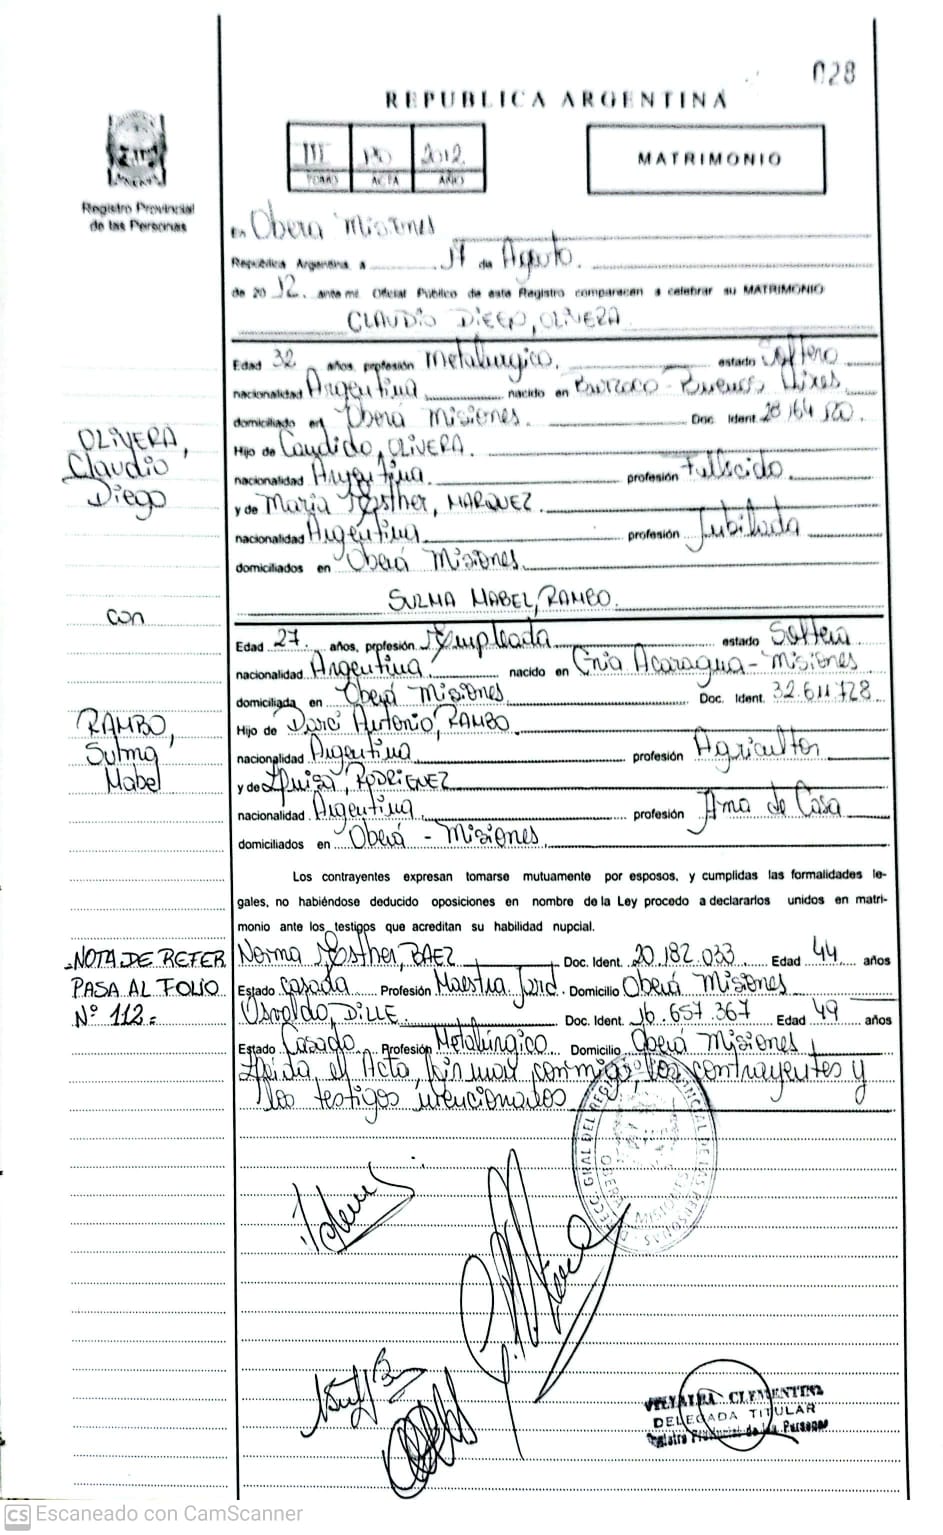 028
REPUBLICA ARGENTINA
III 2012
TOMO ACTA AÑO
MATRIMONIO
Registro Provincial
de las Personas
En Oberá Misiones
República Argentina, a 17 de Agosto.
de 2012. ante mí, Oficial Público de este Registro comparecen a celebrar su MATRIMONIO
CLAUDIO DIEGO, OLIVERA.
Edad 32 años, profesión Metalúrgico. estado Soltero
nacionalidad Argentina nacido en Burzaco - Buenos Aires
domiciliado en Oberá Misiones. Doc. Ident. 28.164.
Hijo de Candido, OLIVERA.
nacionalidad Argentina. profesión Fallecido
y de Maria Esther, MARQUEZ.
nacionalidad Argentina profesión Jubilada
domiciliados en Oberá Misiones
OLIVERA,
Claudio
Diego
con
RAMBO,
Sulma
Mabel
SULMA MABEL, RAMBO.
Edad 27. años, profesión Empleada estado Soltera
nacionalidad Argentina nacido en Cnia Acaragua - Misiones
domiciliada en Oberá Misiones Doc. Ident. 32.611.728
Hijo de Darci Antonio, RAMBO
nacionalidad Argentina profesión Agricultor
y de Luisa, RODRIGUEZ
nacionalidad Argentina profesión Ama de Casa
domiciliados en Oberá - Misiones
Los contrayentes expresan tomarse mutuamente por esposos, y cumplidas las formalidades le-
gales, no habiéndose deducido oposiciones en nombre de la Ley procedo a declararlos unidos en matri-
monio ante los testigos que acreditan su habilidad nupcial.
NOTA DE REFER
PASA AL FOLIO
Nº 112=
Norma Esther, BAEZ Doc. Ident. 20.182.033 Edad 44 años
Estado casada Profesión Maestra Jard. Domicilio Oberá Misiones
Osvaldo, DILLE. Doc. Ident. 16.657.367 Edad 49 años
Estado Casado Profesión Metalúrgico Domicilio Oberá Misiones
Leída el Acta, firman conmigo los contrayentes y
los testigos mencionados
DIRECC. GRAL DEL REGISTRO PROVINCIAL DE LAS PERSONAS
OBERA MISIONES
VILLALBA CLEMENTINA
DELEGADA TITULAR
Registro Provincial de las Personas
CS Escaneado con CamScanner